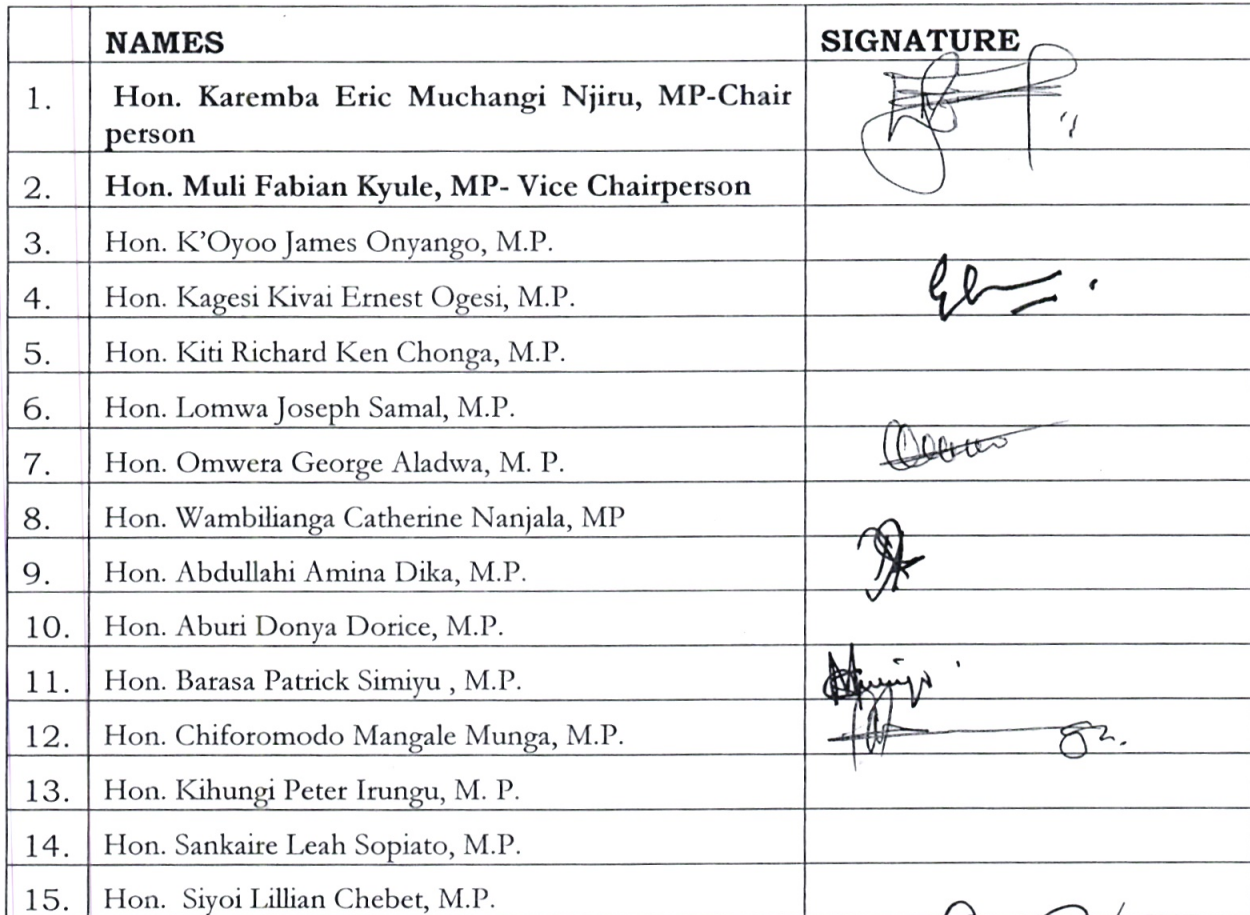 NAMES SIGNATURE
1. Hon. Karemba Eric Muchangi Njiru, MP-Chair
person
2. Hon. Muli Fabian Kyule, MP- Vice Chairperson
3. Hon. K'Oyoo James Onyango, M.P.
4. Hon. Kagesi Kivai Ernest Ogesi, M.P.
5. Hon. Kiti Richard Ken Chonga, M.P.
6. Hon. Lomwa Joseph Samal, M.P.
7. Hon. Omwera George Aladwa, M. P.
8. Hon. Wambilianga Catherine Nanjala, MP
9. Hon. Abdullahi Amina Dika, M.P.
10. Hon. Aburi Donya Dorice, M.P.
11. Hon. Barasa Patrick Simiyu , M.P.
12. Hon. Chiforomodo Mangale Munga, M.P.
13. Hon. Kihungi Peter Irungu, M. P.
14. Hon. Sankaire Leah Sopiato, M.P.
15. Hon. Siyoi Lillian Chebet, M.P.